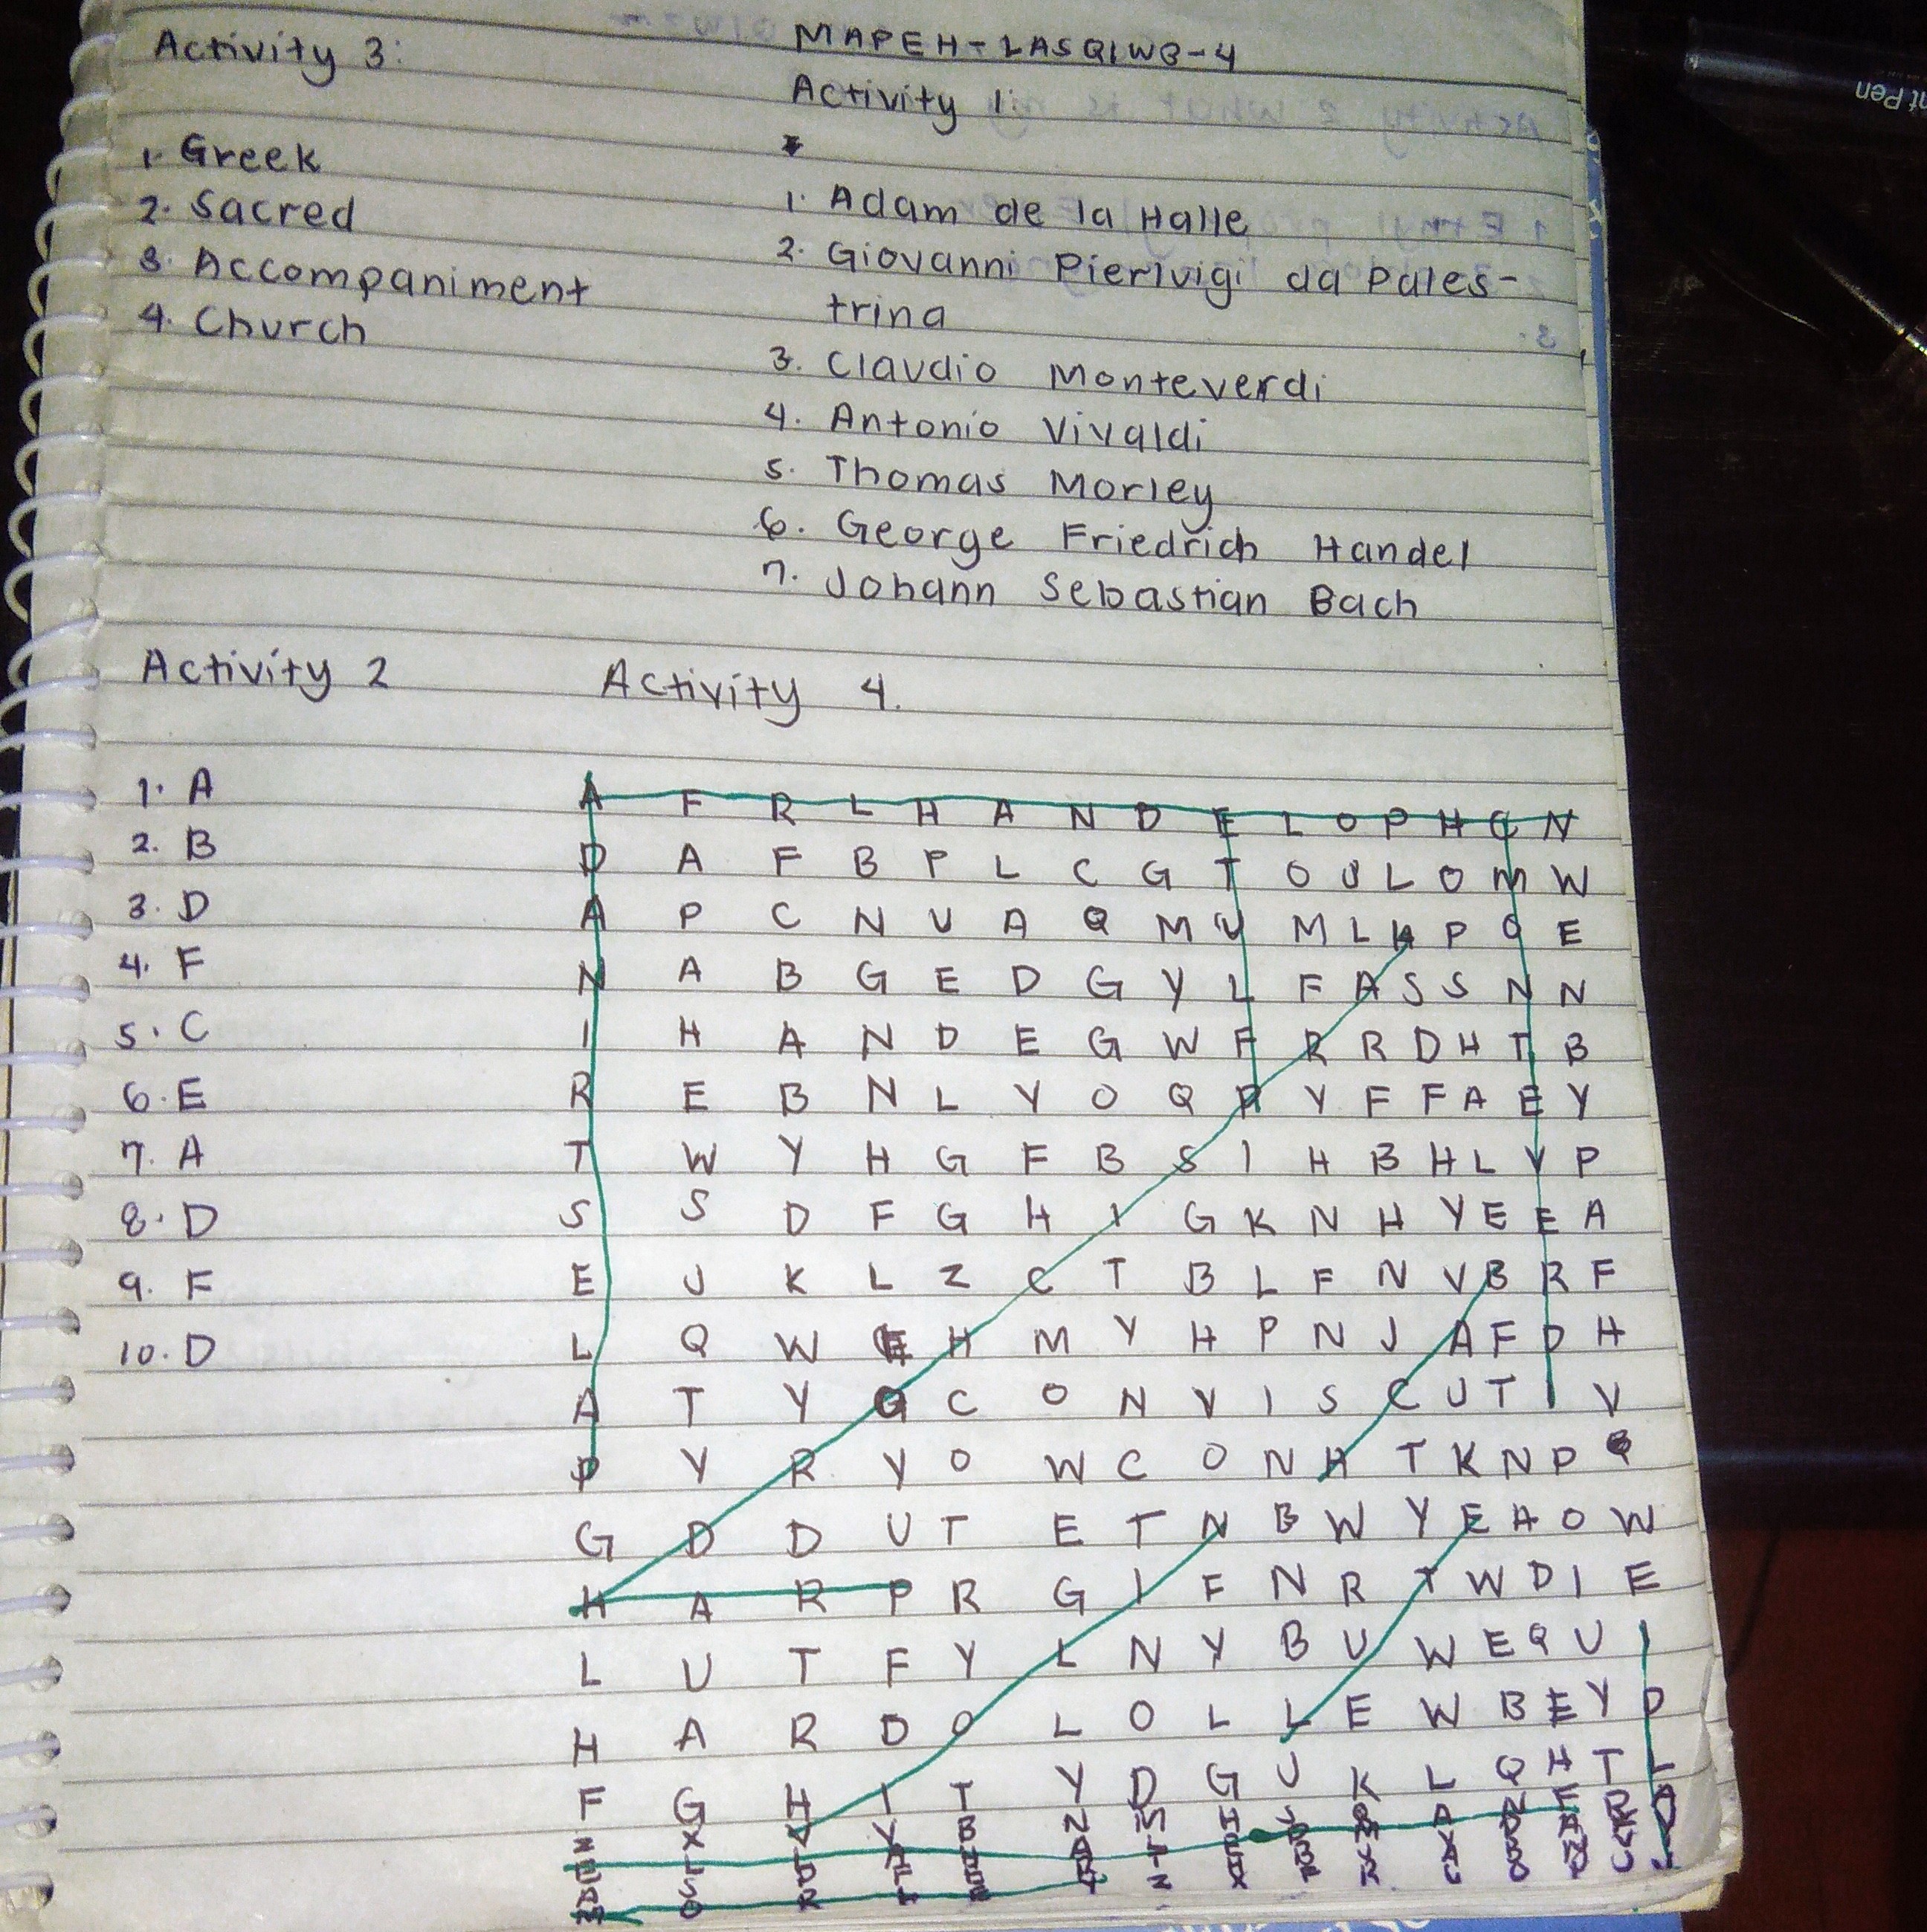 Activity 3:
1. Greek
2. Sacred
3. Accompaniment
4. Church
MAPEH-LASQ1W3-4
Activity 1:
1. Adam de la Halle
2. Giovanni Pierluigi da Pales-
trina
3. Claudio Monteverdi
4. Antonio Vivaldi
5. Thomas Morley
6. George Friedrich Handel
7. Johann Sebastian Bach
Activity 2
1. A
2. B
3. D
4. F
5. C
6. E
7. A
8. D
9. F
10. D
Activity 4.
A F R L H A N D E L O P H C N
D A F B P L C G T O U L O M W
A P C N U A Q M U M L H P O E
N A B G E D G Y L F A S S N N
I H A N D E G W F R R D H T B
R E B N L Y O Q P Y F F A E Y
T W Y H G F B S I H B H L V P
S S D F G H I G K N H Y E E A
E J K L Z C T B L F N V B R F
L Q W E H M Y H P N J A F D H
A T Y O C O N V I S C U T I V
P Y R Y O W C O N H T K N P Q
G D D U T E T N B W Y E A O W
H A R P R G I F N R T W D I E
L U T F Y L N Y B U W E Q U I
H A R D O L O L L E W B E Y D
F G H I T Y D G U K L Q H T L
nt Pen